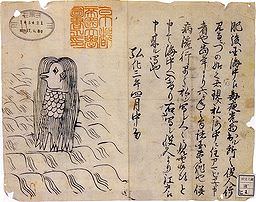 肥後国海中え毎夜光物出ル所之役人行
見るニづの如之者現す私ハ海中ニ住アマビヱト申
者也當年より六ヶ年之間諸国豊作也併
病流行早々私ヲ写シ人々ニ見セ候得ト
申て海中へ入けり右写シ役人より江戸え
申来ル写也
弘化三年四月中旬